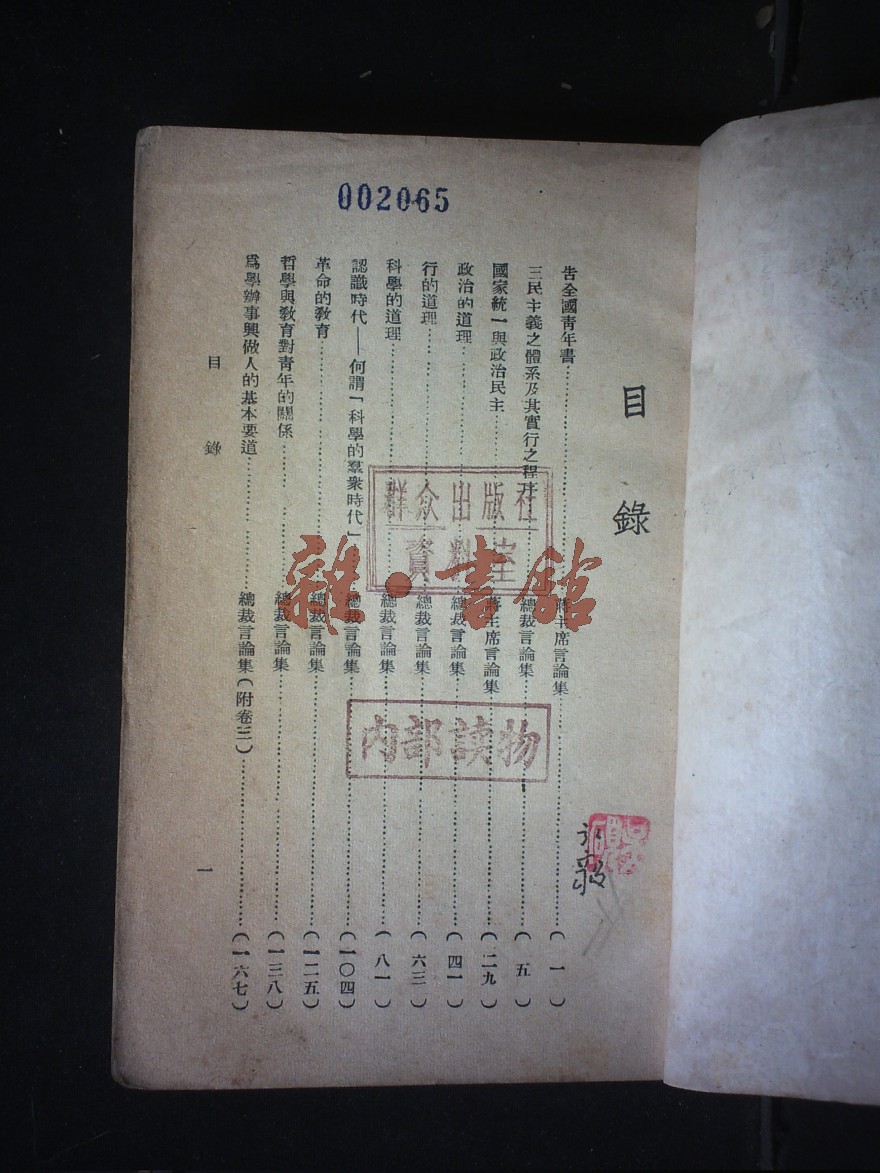 002065
目錄
告全國青年書……蔣主席言論集……(一)
三民主義之體系及其實行之程序……總裁言論集……(五)
國家統一與政治民主……蔣主席言論集……(二九)
政治的道理……總裁言論集……(四一)
行的道理……總裁言論集……(六三)
科學的道理……總裁言論集……(八一)
認識時代——何謂「科學的羣衆時代」……總裁言論集……(一〇四)
革命的教育……總裁言論集……(一二五)
哲學與教育對青年的關係……總裁言論集……(一三八)
爲學辦事與做人的基本要道……總裁言論集(附卷三)……(一六七)
目錄
一
群众出版社
資料室
内部读物
雜·書館